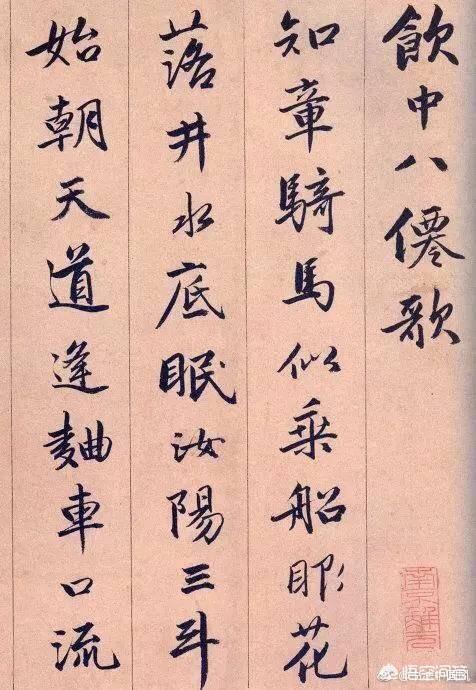 飲中八僊歌
知章騎馬似乘船眼花
落井水底眠汝陽三斗
始朝天道逢麯車口流
悟空问答